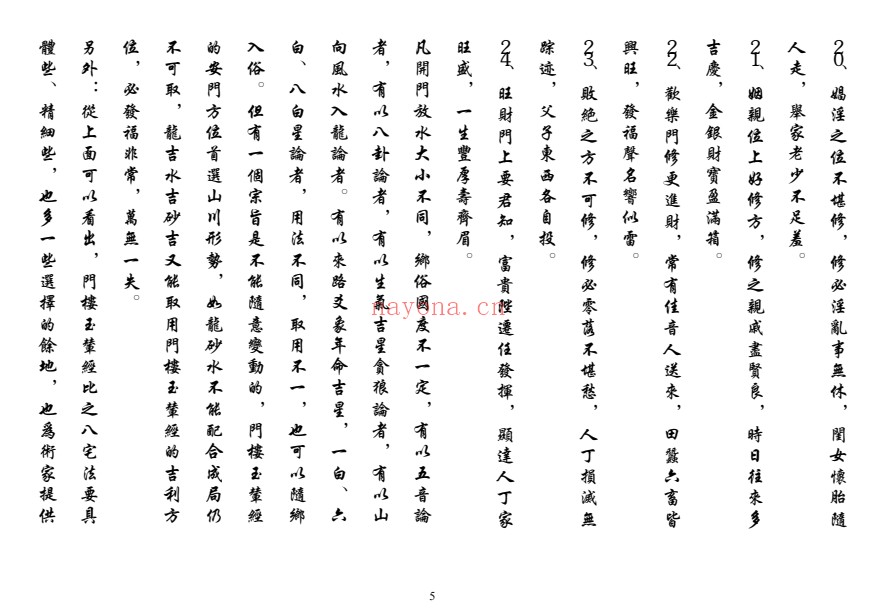 20、娼淫之位不堪修，修必淫亂事無休，閨女懷胎隨
人走，舉家老少不足羞。
21、姻親位上好修方，修之親戚盡賢良，時日往來多
吉慶，金銀財寶盈滿箱。
22、歡樂門修更進財，常有佳音人送來，田蠶六畜皆
興旺，發福聲名響似雷。
23、敗絕之方不可修，修必零落不堪愁，人丁損滅無
踪迹，父子東西各自投。
24、旺財門上要君知，富貴陞遷任發揮，顯達人丁家
旺盛，一生豐厚壽齊眉。
凡開門放水大小不同，鄉俗國度不一定，有以五音論
者，有以八卦論者，有以生氣吉星貪狼論者，有以山
向風水入龍論者。有以來路爻象年命吉星，一白、六
白、八白星論者，用法不同，取用不一，也可以隨鄉
入俗。但有一個宗旨是不能隨意變動的，門樓玉輦經
的安門方位首選山川形勢，如龍砂水不能配合成局仍
不可取，龍吉水吉砂吉又能取用門樓玉輦經的吉利方
位，必發福非常，萬無一失。
另外：從上面可以看出，門樓玉輦經比之八宅法要具
體些、精細些，也多一些選擇的餘地，也爲術家提供
nayona.cn
5